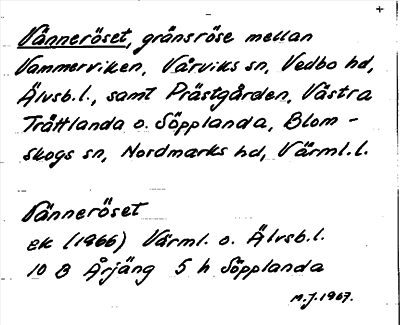 +
Vänneröset, gränsröse mellan
Vammerviken, Vårviks sn, Vedbo hd,
Älvsb.l., samt Prästgården, Västra
Tråttlanda o. Söpplanda, Blom-
skogs sn, Nordmarks hd, Värml.l.
Vänneröset
ek (1966) Värml. o. Älvsb.l.
10 B Årjäng 5 h Söpplanda
M.J. 1967.